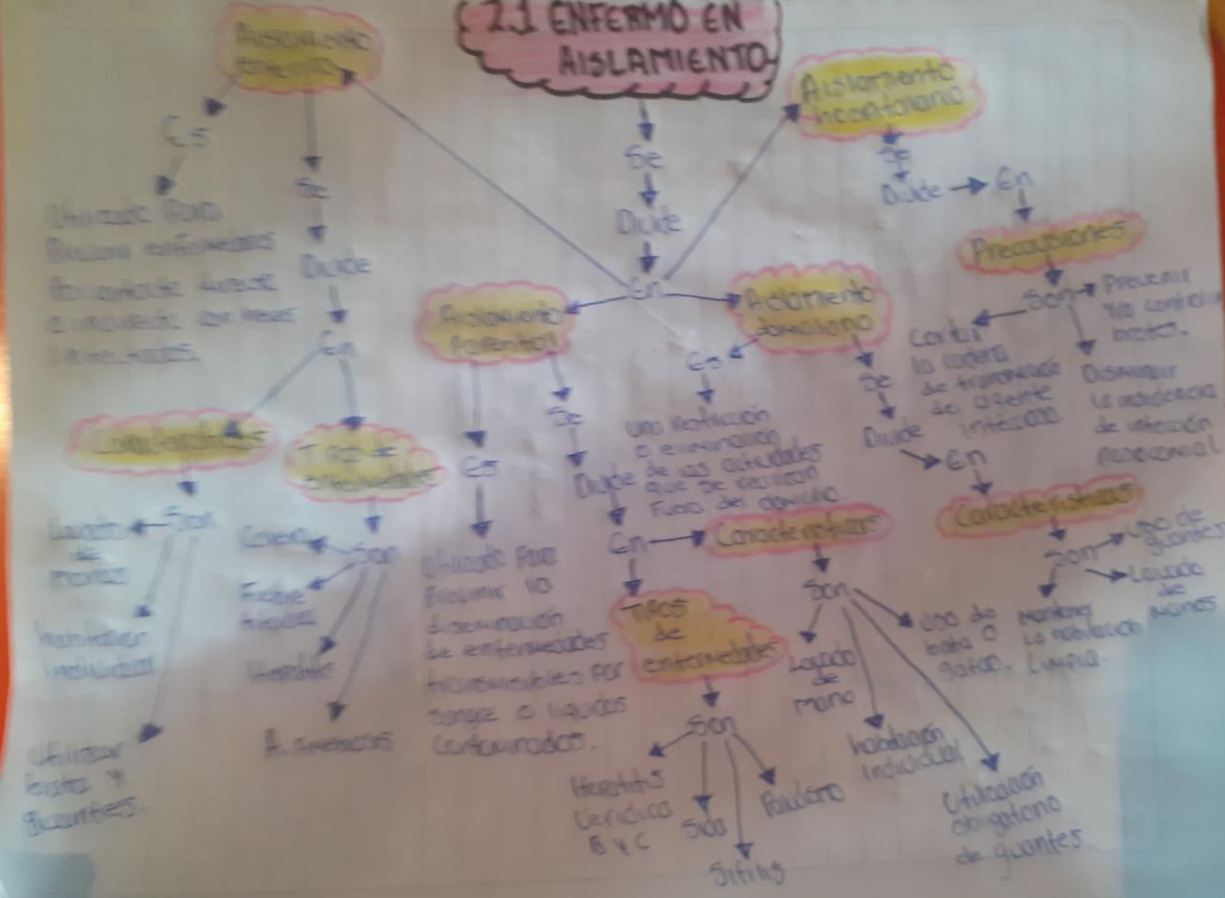 2.1 ENFERMO EN
AISLAMIENTO
Se
Divide
En
Aislamiento
Es
Utilizado Para
enfermedades
Por contacto directo
o indirecto con heces
Se
Divide
En
Características
Son
Lavado
de
manos
habitación
individual
Utilizar
bata y
guantes.
Tipos de
enfermedades
Son
Colera
Fiebre
Hepatitis
Aislamiento
Parenteral
Es
Utilizado Para
la
diseminación
de enfermedades
transmisibles Por
sangre o liquidos
contaminados.
Se
Divide
En
Tipos
de
enfermedades
Son
Hepatitis
B y C
Sida
Sifilis
Paludismo
Características
Son
Lavado
de
mano
habitación
individual
Utilización
obligatoria
de guantes.
Uso de
bata o
Aislamiento
domiciliario
Es
una restricción
o
de las actividades
que se realizan
Fuera del domicilio
Se
Divide
En
Características
Son
Uso de
guantes
Lavado
de
manos.
Mantener
La habitación
Limpia.
Aislamiento
hospitalario
Se
Divide
En
Precauciones
Son
Prevenir
brotes.
Cortar
la cadena
de transmisión
del agente
Disminuir
La incidencia
de infección